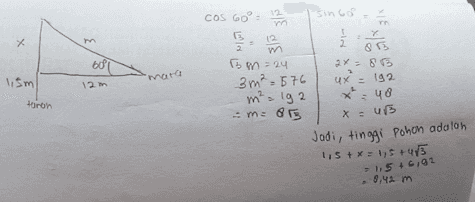 x
m
60°
1,5m
12 m
mata
tanah
cos 60° = 12/m
√3/2 = 12/m
√3 m = 24
3m² = 576
m² = 192
= m = 8√3
sin 60° = x/m
1/2 = x/8√3
2x = 8√3
4x² = 192
x² = 48
x = 4√3
Jadi, tinggi pohon adalah
1,5 + x = 1,5 + 4√3
= 1,5 + 6,92
= 8,42 m